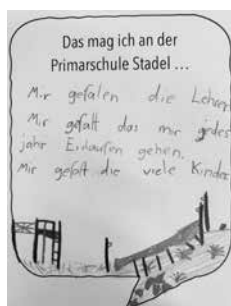 Das mag ich an der
Primarschule Stadel ...
Mir gefalen die Lehrer
Mir gefält das mir jedes
jahr Eislaufen gehen.
Mir gefält die viele Kinder